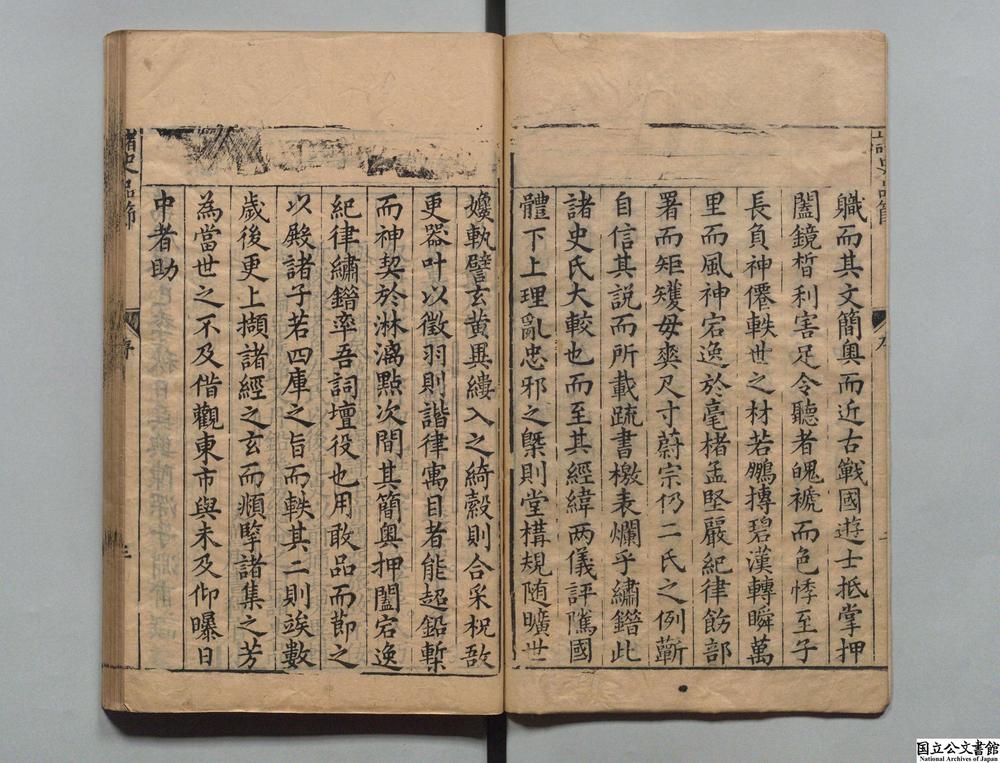 職而其文簡奧而近古戰國遊士抵掌押
闔鏡晳利害足令聽者魄褫而色悸至子
長負神僊軼世之材若鵬摶碧漢轉瞬萬
里而風神宕逸於毫楮孟堅嚴紀律飭部
署而矩矱毋爽尺寸蔚宗仍二氏之例蘄
自信其說而所載疏書檄表爛乎繡錯此
諸史氏大較也而至其經緯两儀評隲國
體下上理亂忠邪之槩則堂構規随曠世
孍軌譬玄黃異縷入之綺縠則合采柷敔
更器叶以徵羽則諧律寓目者能超鉛槧
而神契於淋漓點次間其簡奧押闔宕逸
紀律繡錯率吾詞壇役也用敢品而節之
以殿諸子若四庫之旨而軼其二則竢數
歲後更上擷諸經之玄而頫擥諸集之芳
為當世之不及偕觀東市與未及仰曝日
中者助
諸史品節
序
三
国立公文書館
National Archives of Japan